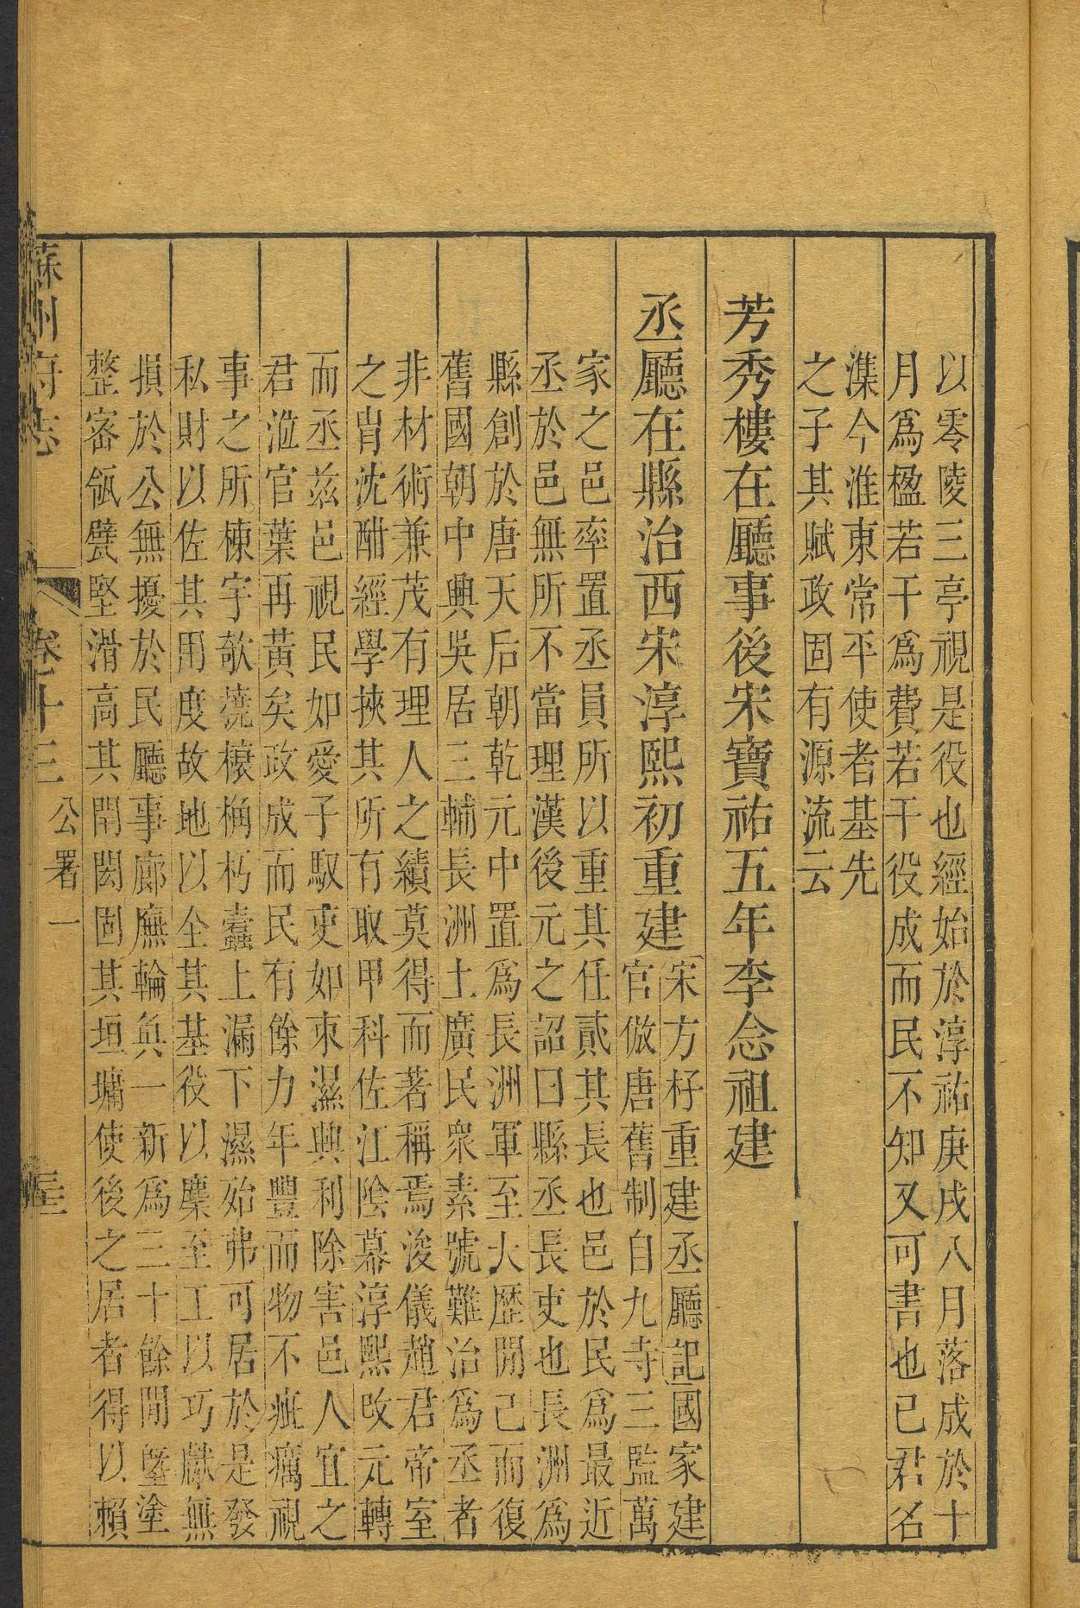 以零陵三亭視是役也經始於淳祐庚戌八月落成於十
月爲楹若干爲費若干役成而民不知又可書也已君名
潗今淮東常平使者基先
之子其賦政固有源流云
芳秀樓在廳事後宋寶祐五年李念祖建
丞廳在縣治西宋淳熙初重建
宋方杍重建丞廳記國家建
官倣唐舊制自九寺三監萬
家之邑率置丞員所以重其任貳其長也邑於民爲最近
丞於邑無所不當理漢後元之詔曰縣丞長吏也長洲爲
縣創於唐天后朝乾元中置爲長洲軍至大歷閒己而復
舊國朝中興吳居三輔長洲土廣民衆素號難治爲丞者
非材術兼茂有理人之績莫得而著稱焉浚儀趙君帝室
之胄沈酣經學挾其所有取甲科佐江陰幕淳熙改元轉
而丞茲邑視民如愛子馭吏如束濕興利除害邑人宜之
君涖官葉再黃矣政成而民有餘力年豐而物不疵癘視
事之所棟宇欹撓榱桷朽蠹上漏下濕始弗可居於是發
私財以佐其用度故地以全其基役以麇至工以巧獻無
損於公無擾於民廳事廊廡輪奐一新爲三十餘閒墍塗
整審瓴甓堅滑高其閈閎固其垣墉使後之居者得以賴
蘇州府志
卷
十三
公署一